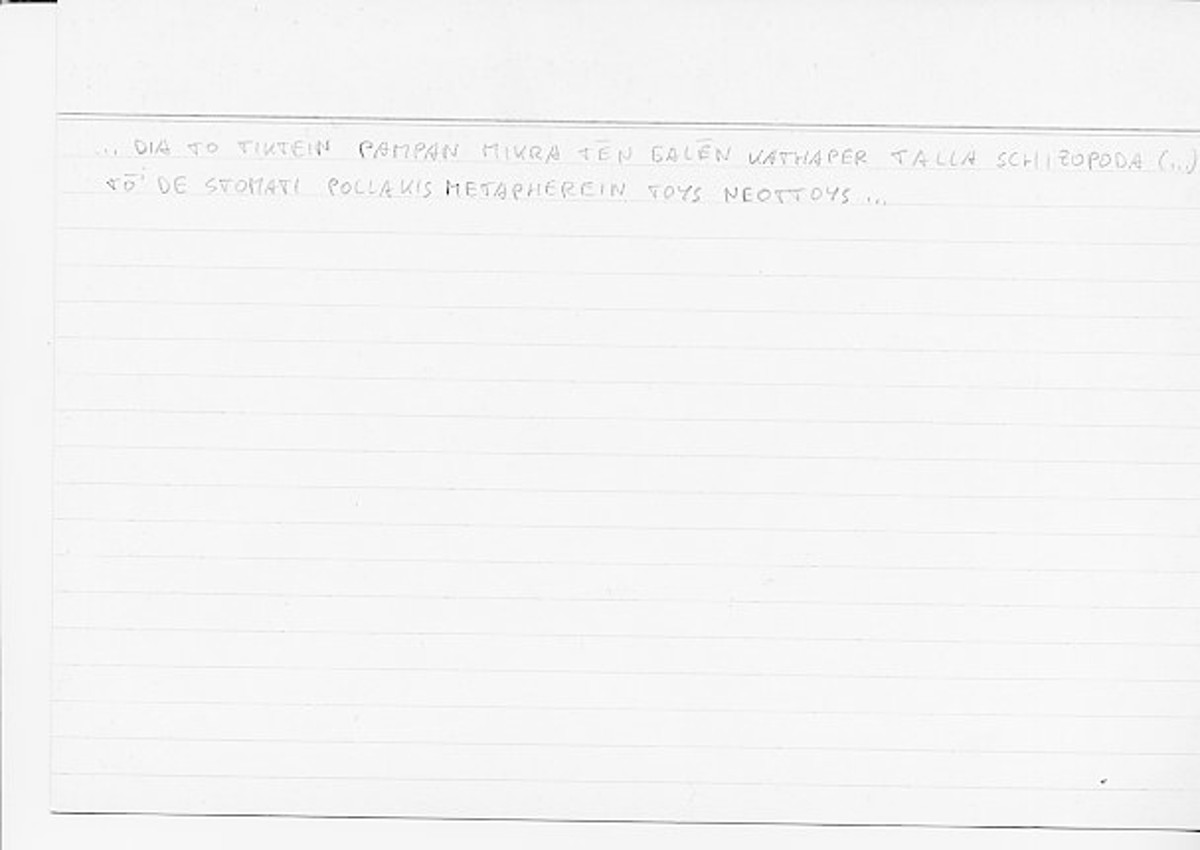 ... DIA TO TIKTEIN PAMPAN MIKRA TĒN GALĒN KATHAPER TALLA SCHIZOPODA (...)
TŌⁱ DE STOMATI POLLAKIS METAPHEREIN TOYS NEOTTOYS ...